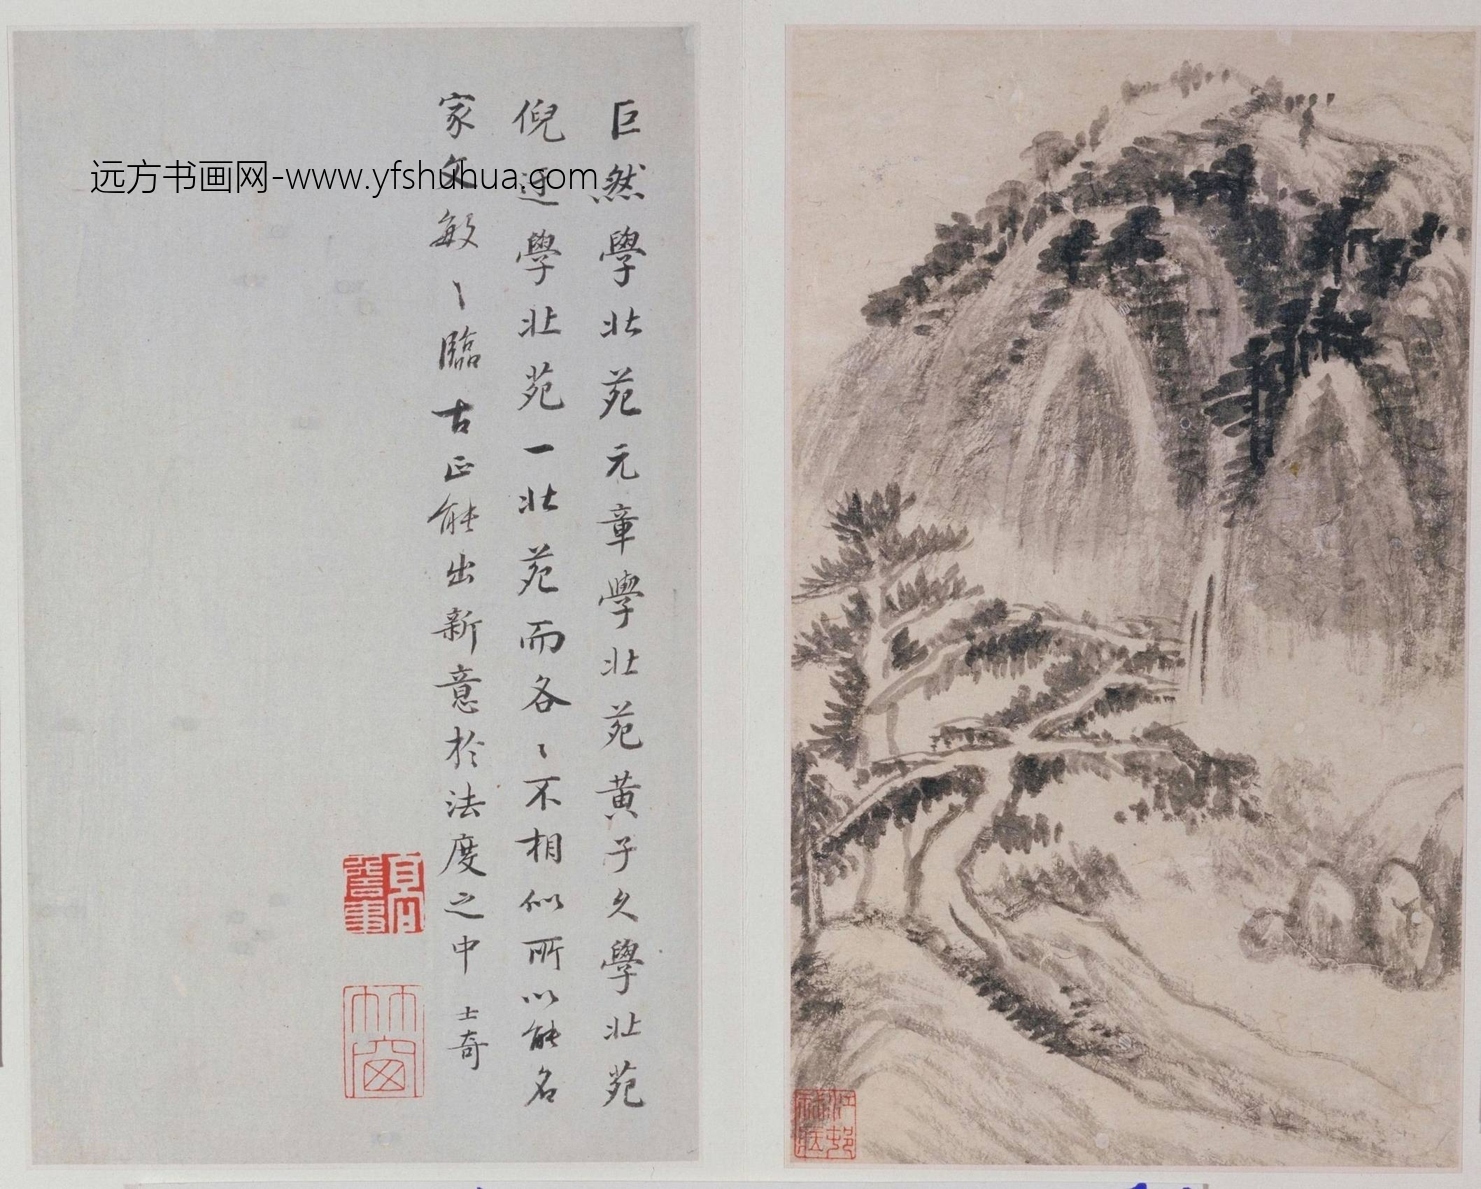 巨然學北苑元章學北苑黃子久學北苑
倪迂學北苑一北苑而各〻不相似所以能名
家文敏〻臨古正能出新意於法度之中 士奇
竹窗
江邨
远方书画网-www.yfshuhua.com